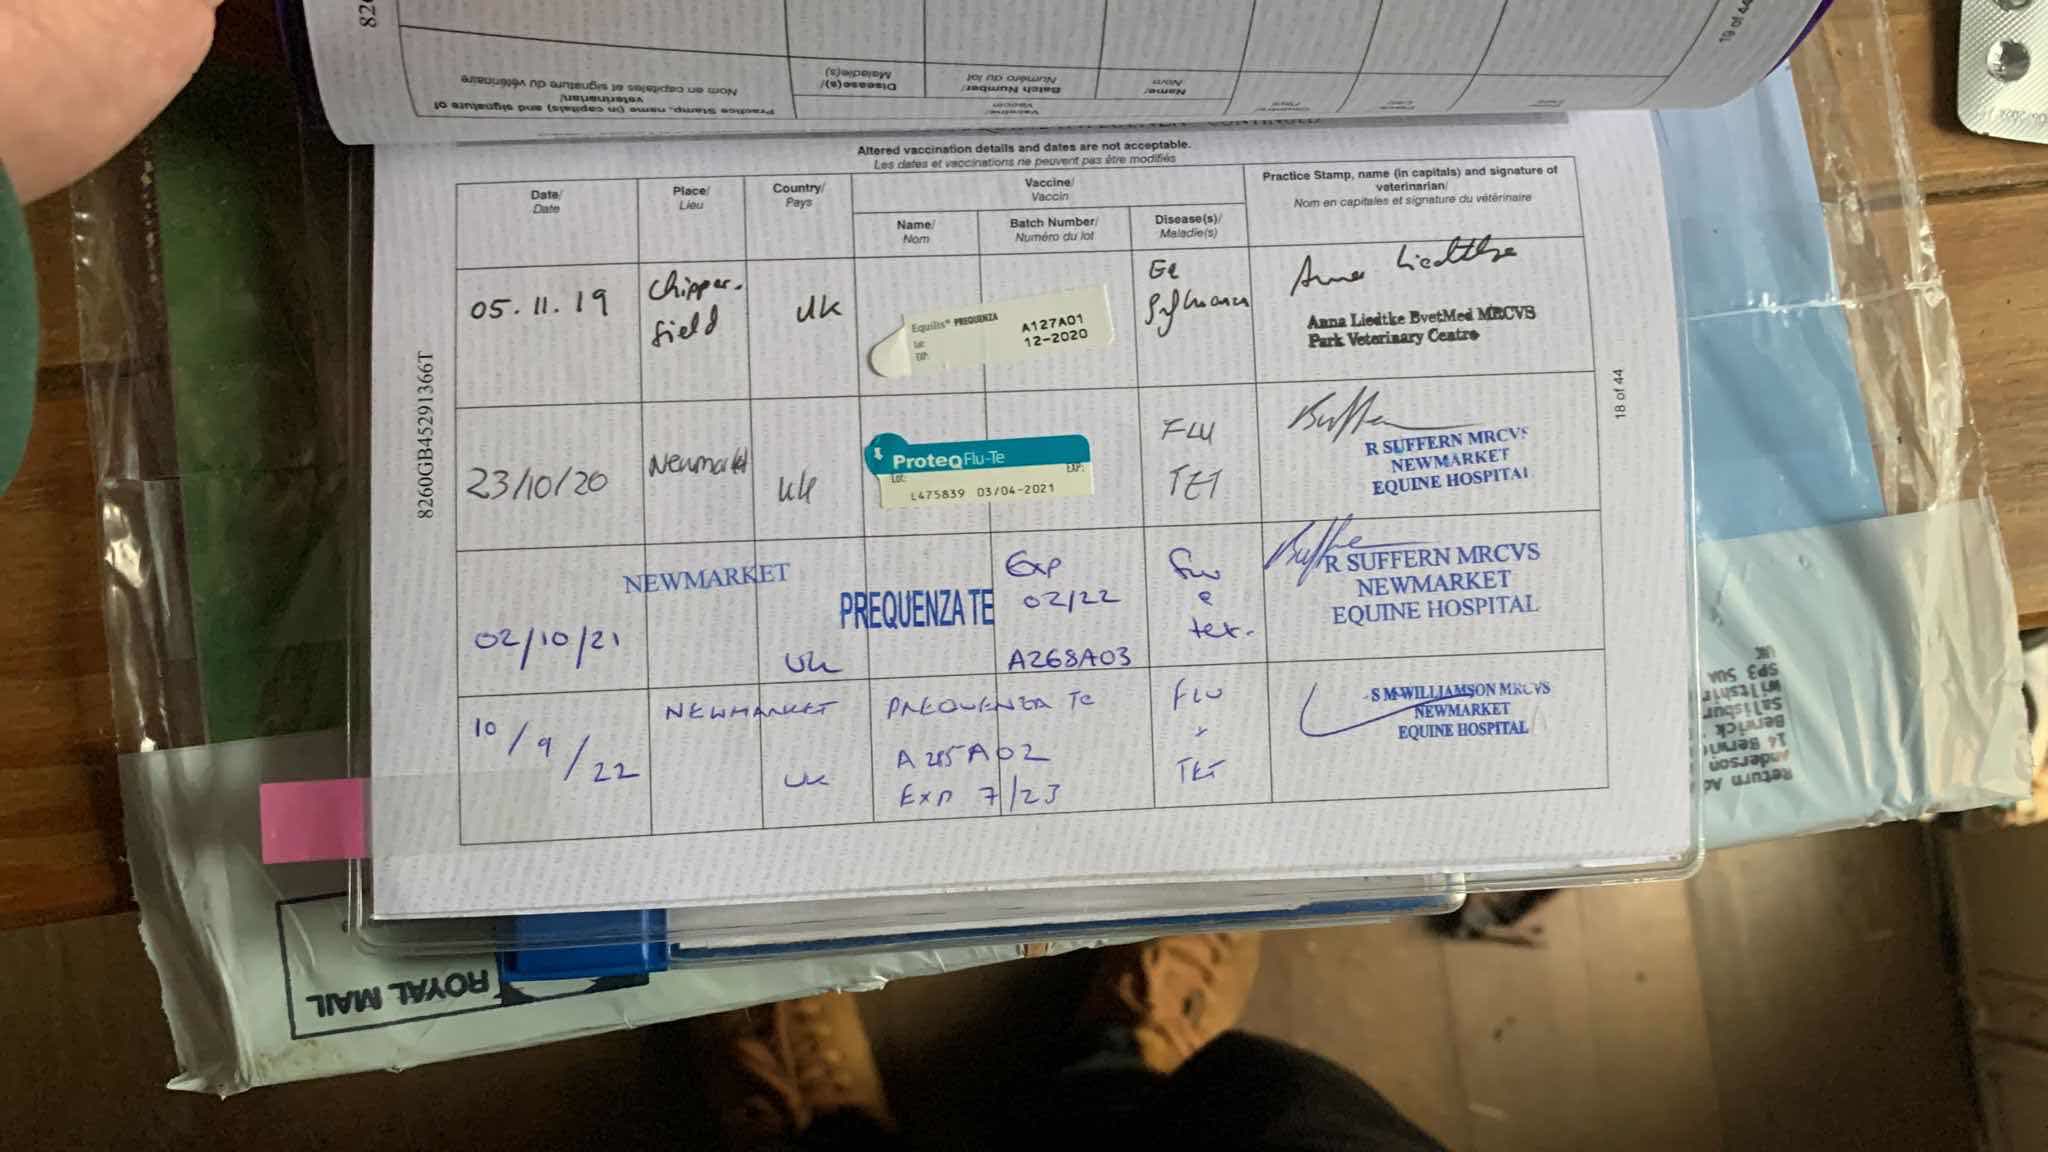 19 of 44
Practice Stamp, name (in capitals) and signature of
veterinarian/
Nom en capitales et signature du vétérinaire
Disease(s)/
Maladie(s)
Batch Number/
Numéro du lot
Name/
Nom
Vaccine/
Vaccin
Altered vaccination details and dates are not acceptable.
Les dates et vaccinations ne peuvent pas être modifiés
Date/
Date
Place/
Lieu
Country/
Pays
Vaccine/
Vaccin
Name/
Nom
Batch Number/
Numéro du lot
Disease(s)/
Maladie(s)
Practice Stamp, name (in capitals) and signature of
veterinarian/
Nom en capitales et signature du vétérinaire
05.11.19
Chipper-
field
UK
Equilis® PREQUENZA
Lot:
EXP:
A127A01
12-2020
Anna Liedtke
Anna Liedtke BvetMed MRCVS
Park Veterinary Centre
23/10/20
Newmarket
UK
ProteqFlu-Te
Lot:
EXP:
L475839 03/04-2021
FLU
TET
R SUFFERN MRCVS
NEWMARKET
EQUINE HOSPITAL
02/10/21
NEWMARKET
UK
PREQUENZA TE
Exp
02/22
A268A03
Flu
e
tet.
R SUFFERN MRCVS
NEWMARKET
EQUINE HOSPITAL
10/9/22
NEWMARKET
UK
PREQUENZA TE
A285A02
Exp 7/23
FLU
+
TET
S M WILLIAMSON MRCVS
NEWMARKET
EQUINE HOSPITAL
8260GB45291366T
18 of 44
ROYAL MAIL
Return
Anderson
14 Berwick
Salisbury
Wiltshire
SP3
UK